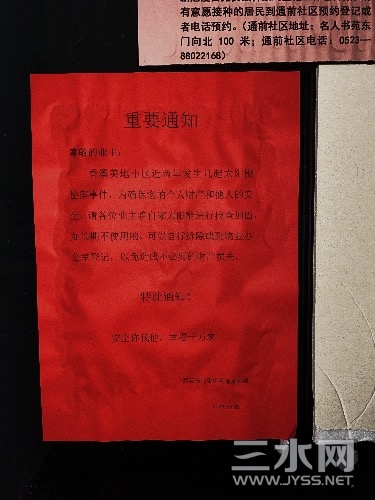 有意愿接种的居民到通前社区预约登记或
者电话预约。（通前社区地址：名人书苑东
门向北 100 米；通前社区电话：0523—
88022168）
重要通知
尊敬的业主：
香溪美地小区近两年发生几起太阳能
坠落事件，为确保您的个人财产和他人的安
全，请各位业主将自家太阳能进行检查加固，
如长期不使用的，可以自行拆除或到物业办
公室登记，以免造成不必要的财产损失。
特此通知！
安全你我他，幸福千万家
三水网
WWW.JYSS.NET